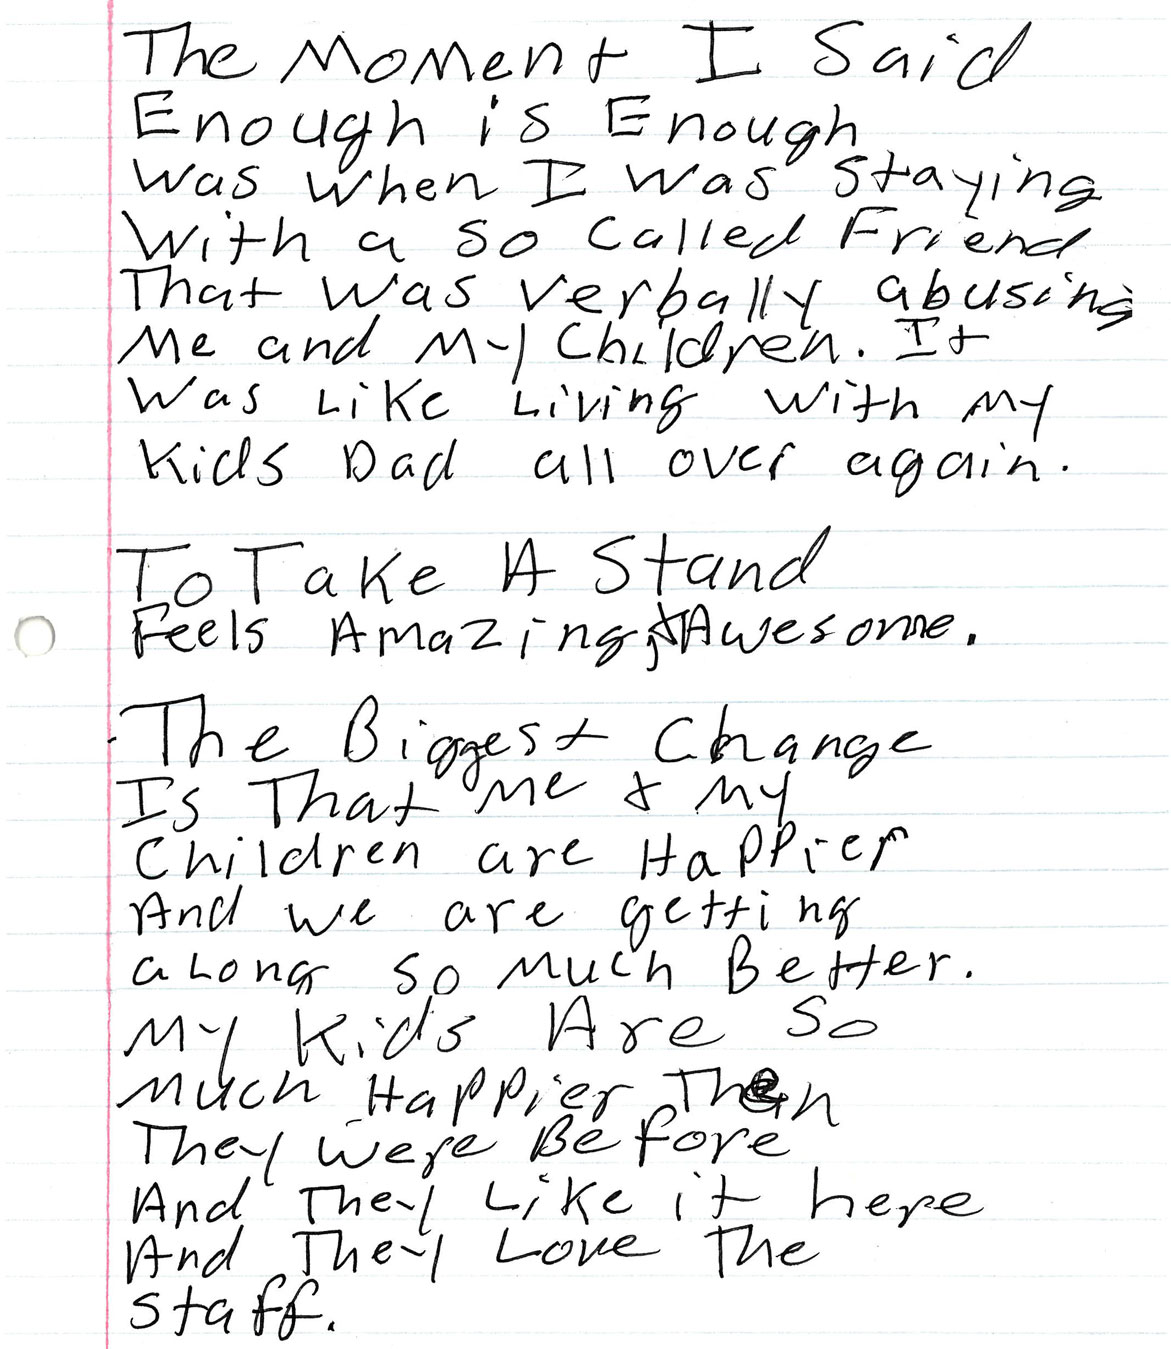 The Moment I Said
Enough is Enough
Was when I was staying
With a so called Friend
That was verbally abusing
Me and My Children. It
Was Like Living with my
Kids Dad all over again.
To Take A Stand
Feels Amazing, & Awesome.
The Biggest Change
Is That me & my
Children are Happier
And we are getting
along so much Better.
My Kids Are So
Much Happier Than
They were Before
And They Like it here
And They Love The
Staff.